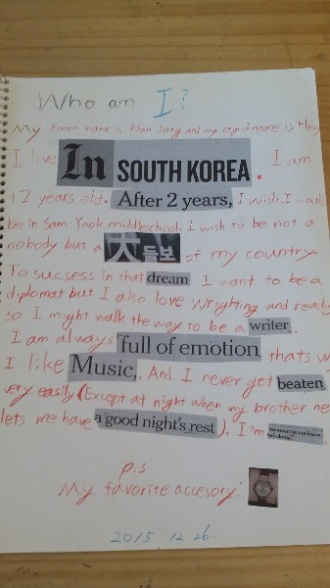 Who am I?
My Korean name is Han Sung and my english name is
I live In SOUTH KOREA. I am
12 years old. After 2 years, I wish I
be in Sam Yook middleschool. I wish to be not a
nobody but a 大들보 of my country.
To sucsess in that dream I want to be a
diplomat but I also love wrighting and
so I might walk the way to be a writer.
I am always full of emotion thats
I like Music,. And I never get beaten
very easily (Except at night when my brother
lets me have a good night's rest). I'm
p.s
My favorite accesory:
2015 12 26